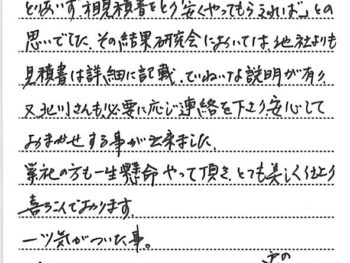 とりあいず、相見積書をとり安くやってもらえればﾞ」との
思いでした。その結果研究会においては他社よりも
見積書は詳細に記載、ていねいな説明が有り
又北川さんも必要に応じ連絡を下さり安心して
おまかせする事が出来ました。
業社の方も一生懸命やって頂き、とても美しく仕上り
喜こんでおります。
一ツ気がついた事。